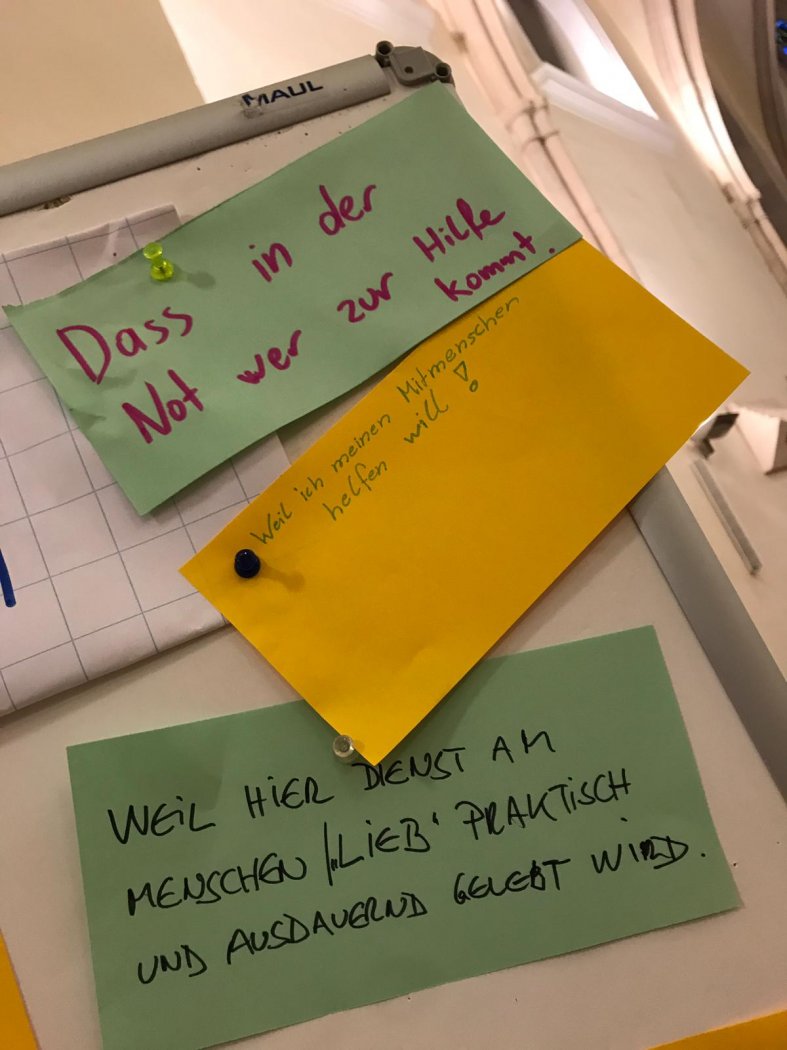 MAUL
Dass in der
Not wer zur Hilfe
kommt.
Weil ich meinen Mitmenschen
helfen will!
WEIL HIER DIENST AM
MENSCHEN / „LIEB‘ PRAKTISCH
UND AUSDAUERND GELEBT WIRD.